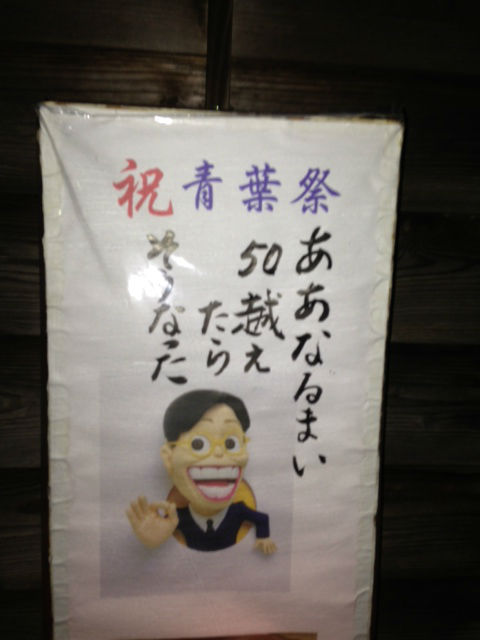 祝 青葉祭
ああなるまい
50越え
たら
そうなった